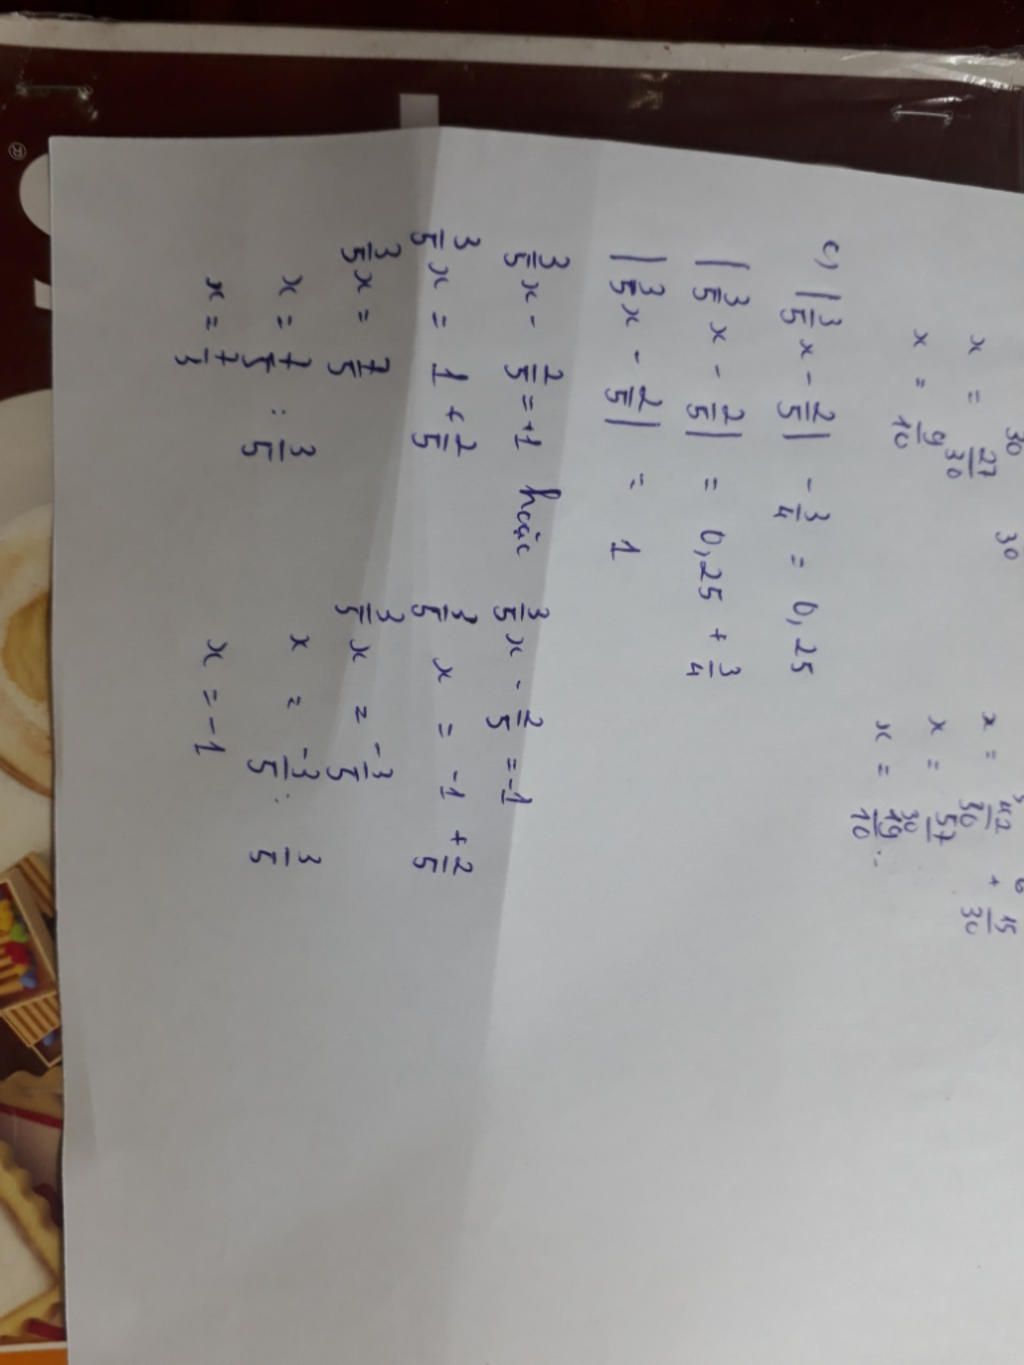 x = 27/30
x = 9/10
x = 42/30 + 15/30
x = 57/30
x = 19/10
c, |3/5 x - 2/5| - 3/4 = 0,25
|3/5 x - 2/5| = 0,25 + 3/4
|3/5 x - 2/5| = 1
3/5 x - 2/5 = +1 hoặc 3/5 x - 2/5 = -1
3/5 x = 1 + 2/5 3/5 x = -1 + 2/5
3/5 x = 7/5 3/5 x = -3/5
x = 7/5 : 3/5 x = -3/5 : 3/5
x = 7/3 x = -1
®